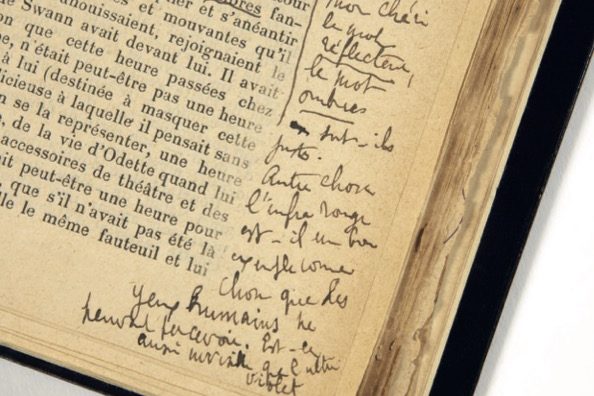 our
bres fan-
er et s'anéantir
anouissaient, rejoignaient le
et mouvantes qu'il
e Swann avait devant lui. Il avait
on que cette heure passées chez
e, n'était peut-être pas une heure
à lui (destinée à masquer cette
licieuse à laquelle il pensait sans
n se la représenter, une heure
, de la vie d'Odette quand lui
accessoires de théâtre et des
ait peut-être une heure pour
que s'il n'avait pas été là
lle le même fauteuil et lui
Mon chéri
le mot
réflecteur,
le mot
ombres
sont-ils
justes.
Autre chose
l'infra rouge
est-il un bon
exemple comme
chose que des
yeux humains ne
peuvent percevoir. Est-ce
aussi invisible que l'ultra
violet